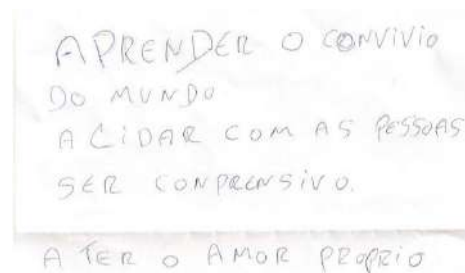 APRENDER O CONVIVIO
DO MUNDO
A CIDAR COM AS PESSOAS
SER CONPRENSIVO.
A TER O AMOR PROPRIO